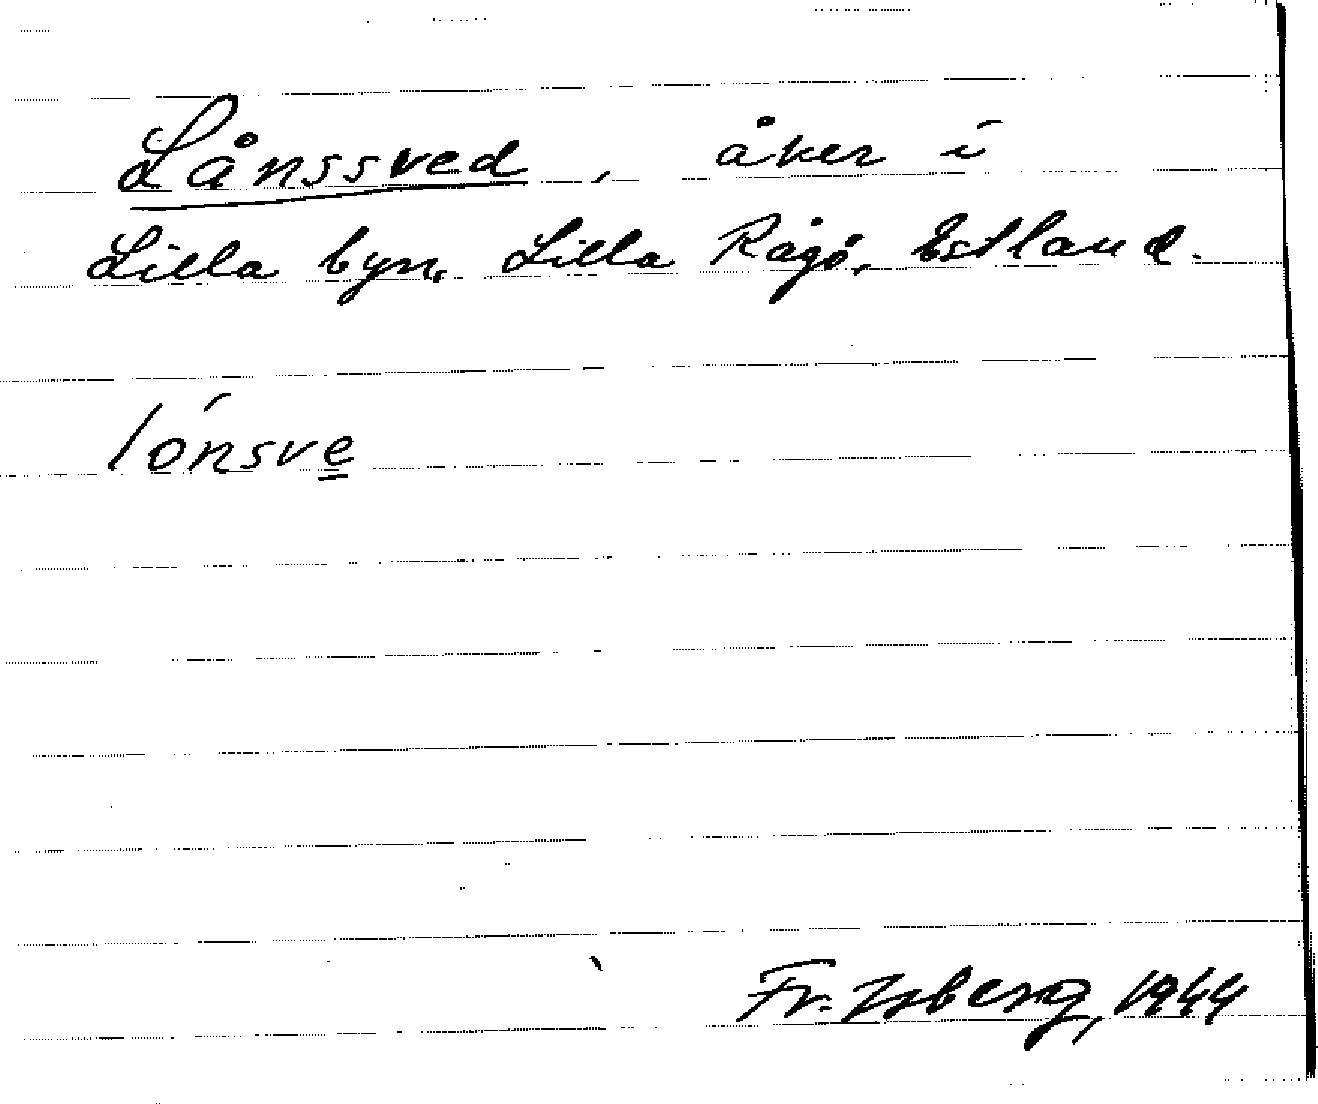 Långssved, åker i
Lilla byn, Lilla Rågö, Estland.
lónsve
Fr. Isberg, 1944